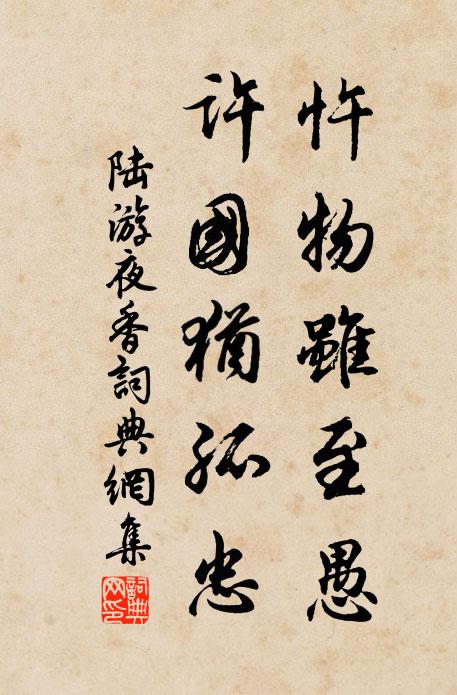 忤物雖至愚
許國猶孤忠
陸游夜香詞典網集
詞典
网印